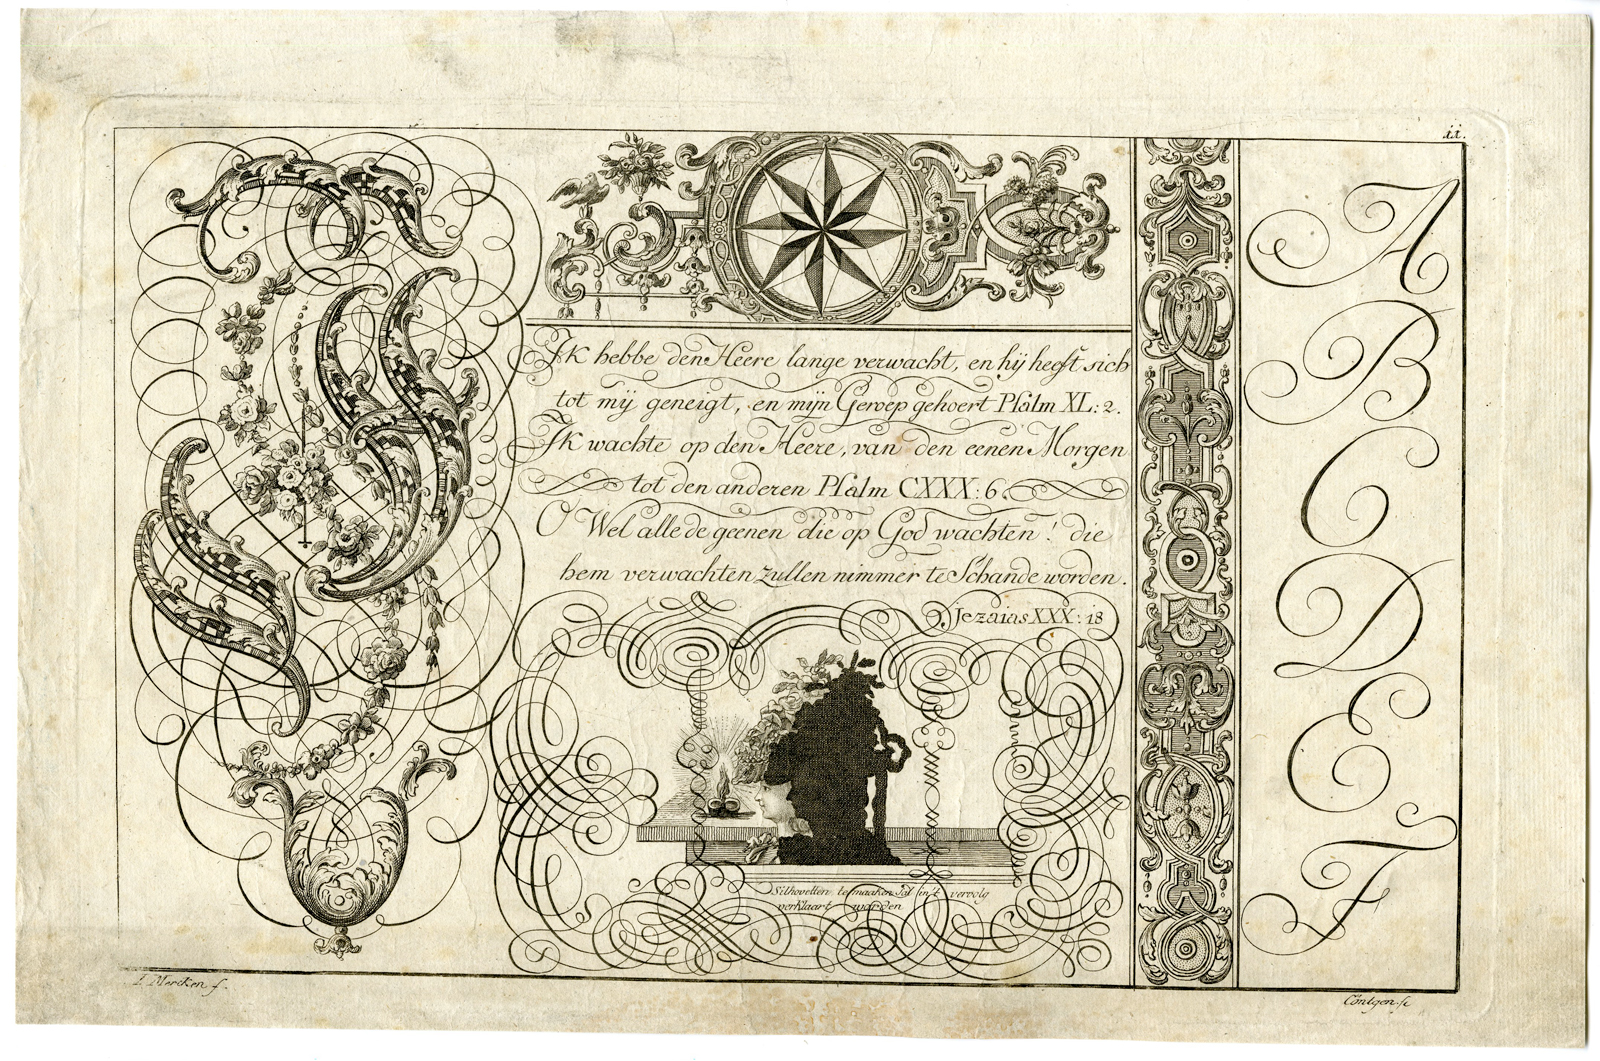 11.
Ik hebbe den Heere lange verwacht, en hij heeft sich
tot mij geneigt, en mijn Geroep gehoert Psalm XL: 2.
Ik wachte op den Heere, van den eenen Morgen
tot den anderen Psalm CXXX: 6.
O Wel alle de geenen die op God wachten! die
hem verwachten zullen nimmer te Schande worden.
Jezaias XXX: 18
Silhovetten te maaken sal in't vervolg
verklaart worden
A
B
C
D
E
F
I. Mercken f.
Cöntgen sc